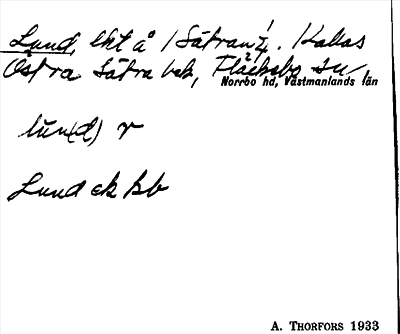 Lund, lht å 1 Sätran 1/4. Kallas
Östra Sätra bek, Fläckebo sn,
Norrbo hd, Västmanlands län
lun(d) r
Lund ek kb
A. THORFORS 1933